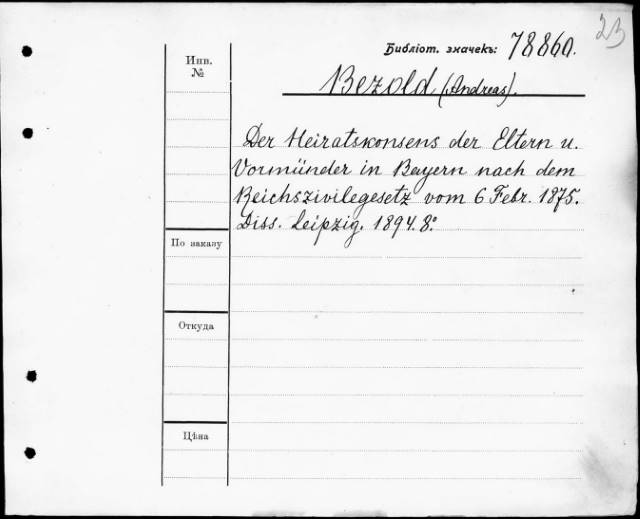 23
Библіот. значекъ: 78860.
Инв. №
Bezold (Andreas).
Der Heiratskonsens der Eltern u.
Vormünder in Bayern nach dem
Reichszivilegesetz vom 6 Febr. 1875.
Diss. Leipzig. 1894. 8º
По заказу
Откуда
Цѣна